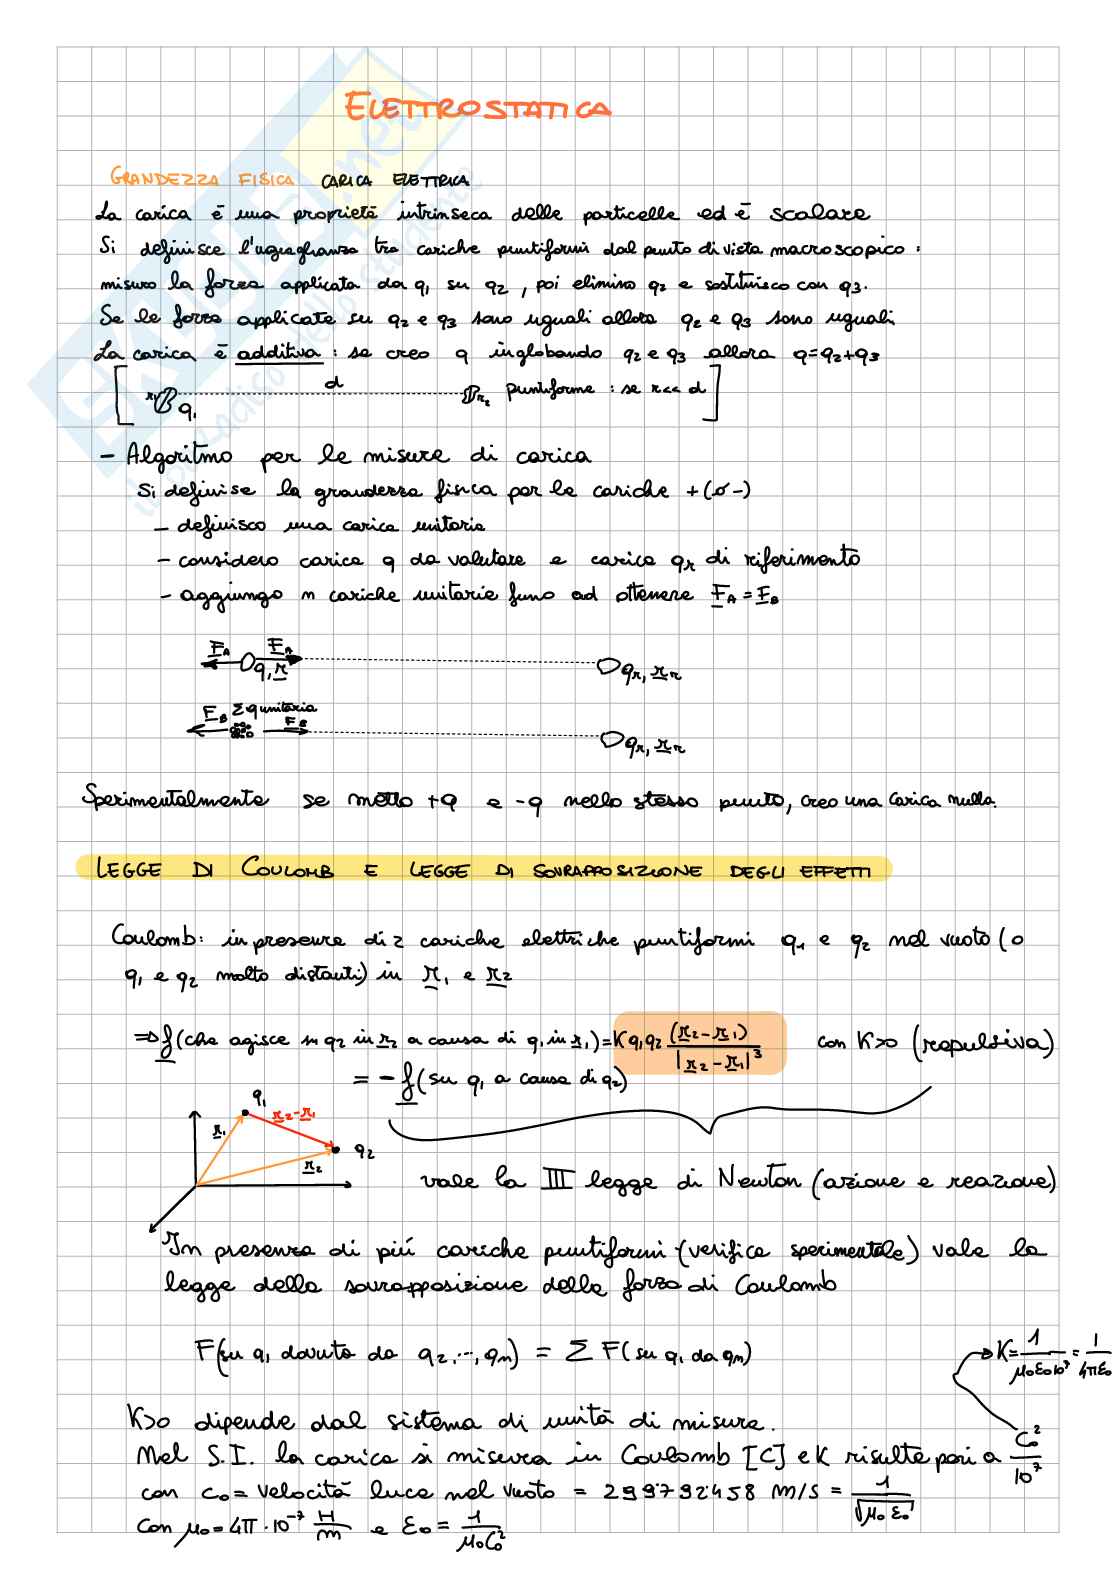 ELETTROSTATICA
GRANDEZZA FISICA CARICA ELETTRICA
La carica è una proprietà intrinseca delle particelle ed è scalare
Si definisce l'uguaglianza tra cariche puntiformi dal punto di vista macroscopico:
misuro la forza applicata da q₁ su q₂, poi elimino q₂ e sostituisco con q₃.
Se le forze applicate su q₂ e q₃ sono uguali allora q₂ e q₃ sono uguali
La carica è additiva: se creo q inglobando q₂ e q₃ allora q=q₂+q₃
[ r₁ q₁ d r₂ puntiforme: se r<<d ]
- Algoritmo per le misure di carica
Si definise la grandezza fisica per le cariche +(o -)
- definisco una carica unitaria
- considero carica q da valutare e carica qᵣ di riferimento
- aggiungo n cariche unitarie fino ad ottenere F_A = F_B
F_A F_A
q, r qᵣ, rᵣ
F_B Σqunitaria F_B
qᵣ, rᵣ
Sperimentalmente se metto +q e -q nello stesso punto, creo una carica nulla.
LEGGE DI COULOMB E LEGGE DI SOVRAPPOSIZIONE DEGLI EFFETTI
Coulomb: in presenza di 2 cariche elettriche puntiformi q₁ e q₂ nel vuoto (o
q₁ e q₂ molto distanti) in r₁ e r₂
⇒ f(che agisce su q₂ in r₂ a causa di q₁ in r₁) = K q₁q₂ (r₂-r₁)/|r₂-r₁|³ con K>0 (repulsiva)
= - f(su q₁ a causa di q₂)
q₁ r₂-r₁
r₁ q₂
r₂
vale la III legge di Newton (azione e reazione)
In presenza di più cariche puntiformi (verifica sperimentale) vale la
legge della sovrapposizione della forza di Coulomb
F(su q₁ dovuta da q₂,...,qₙ) = Σ F(su q₁ da qₙ)
K=1/(μ₀ε₀10⁷)=1/(4πε₀)
K>0 dipende dal sistema di unità di misura.
Nel S.I. la carica si misura in Coulomb [C] e K risulta pari a C₀²/10⁷
con c₀ = velocità luce nel vuoto = 299792458 m/s = 1/√(μ₀ε₀)
con μ₀=4π·10⁻⁷ H/m e ε₀ = 1/(μ₀C₀²)